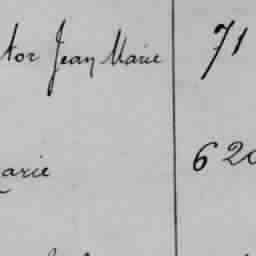 tor Jean Marie 71
arie 620